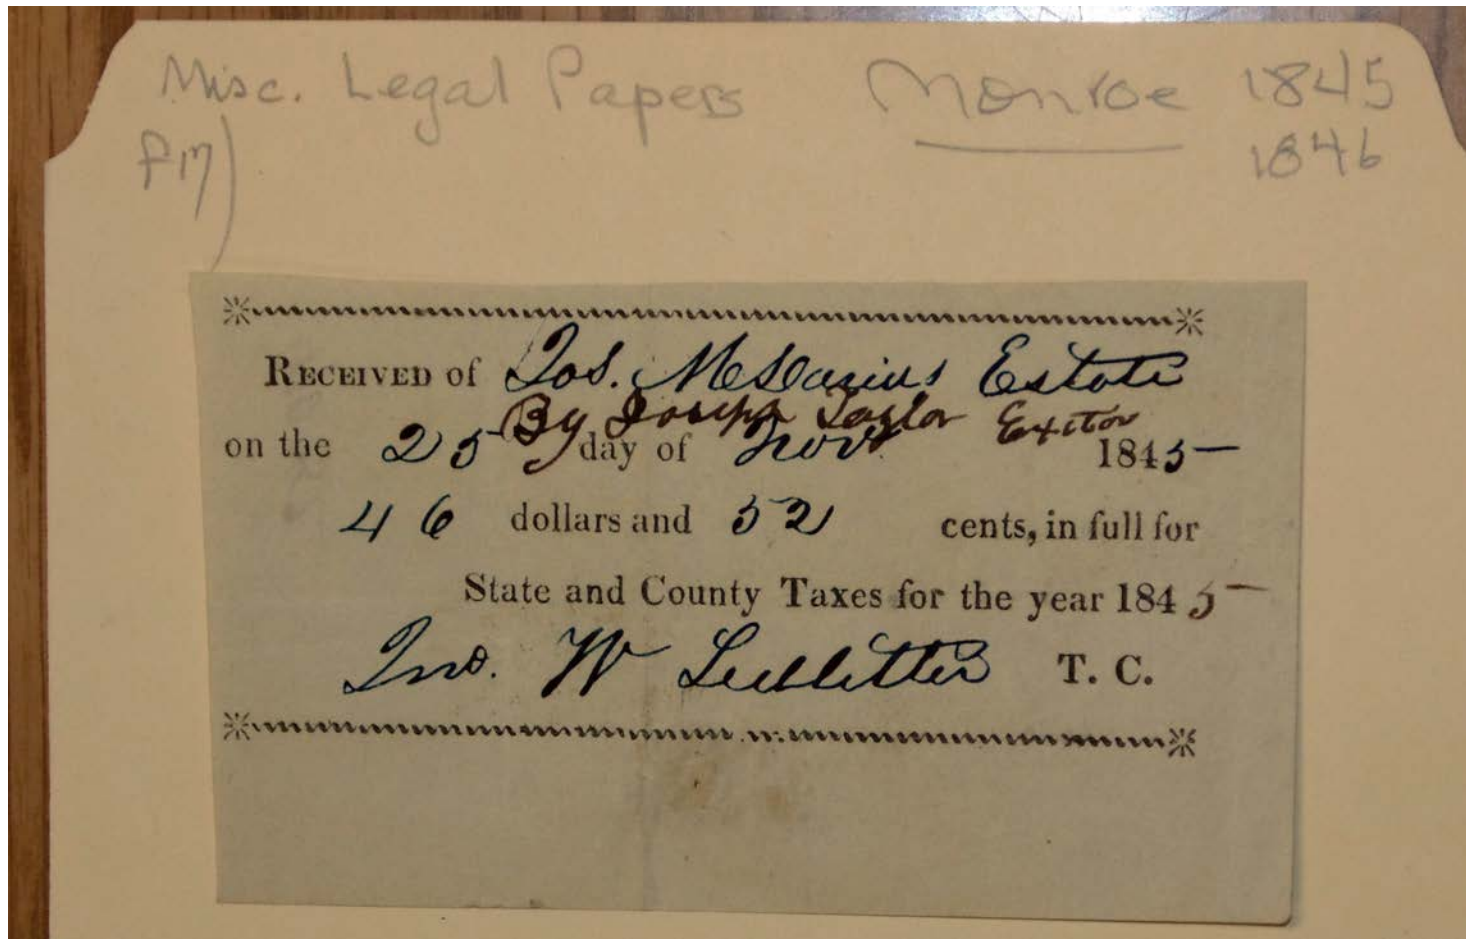 Misc. Legal Papers Monroe 1845
F17) 1846
RECEIVED of Jos. Estate
By Joseph Taylor Exitor
on the 25 day of Novr 1845
46 dollars and 52 cents, in full for
State and County Taxes for the year 1845
Jno. W Ledbetter T. C.